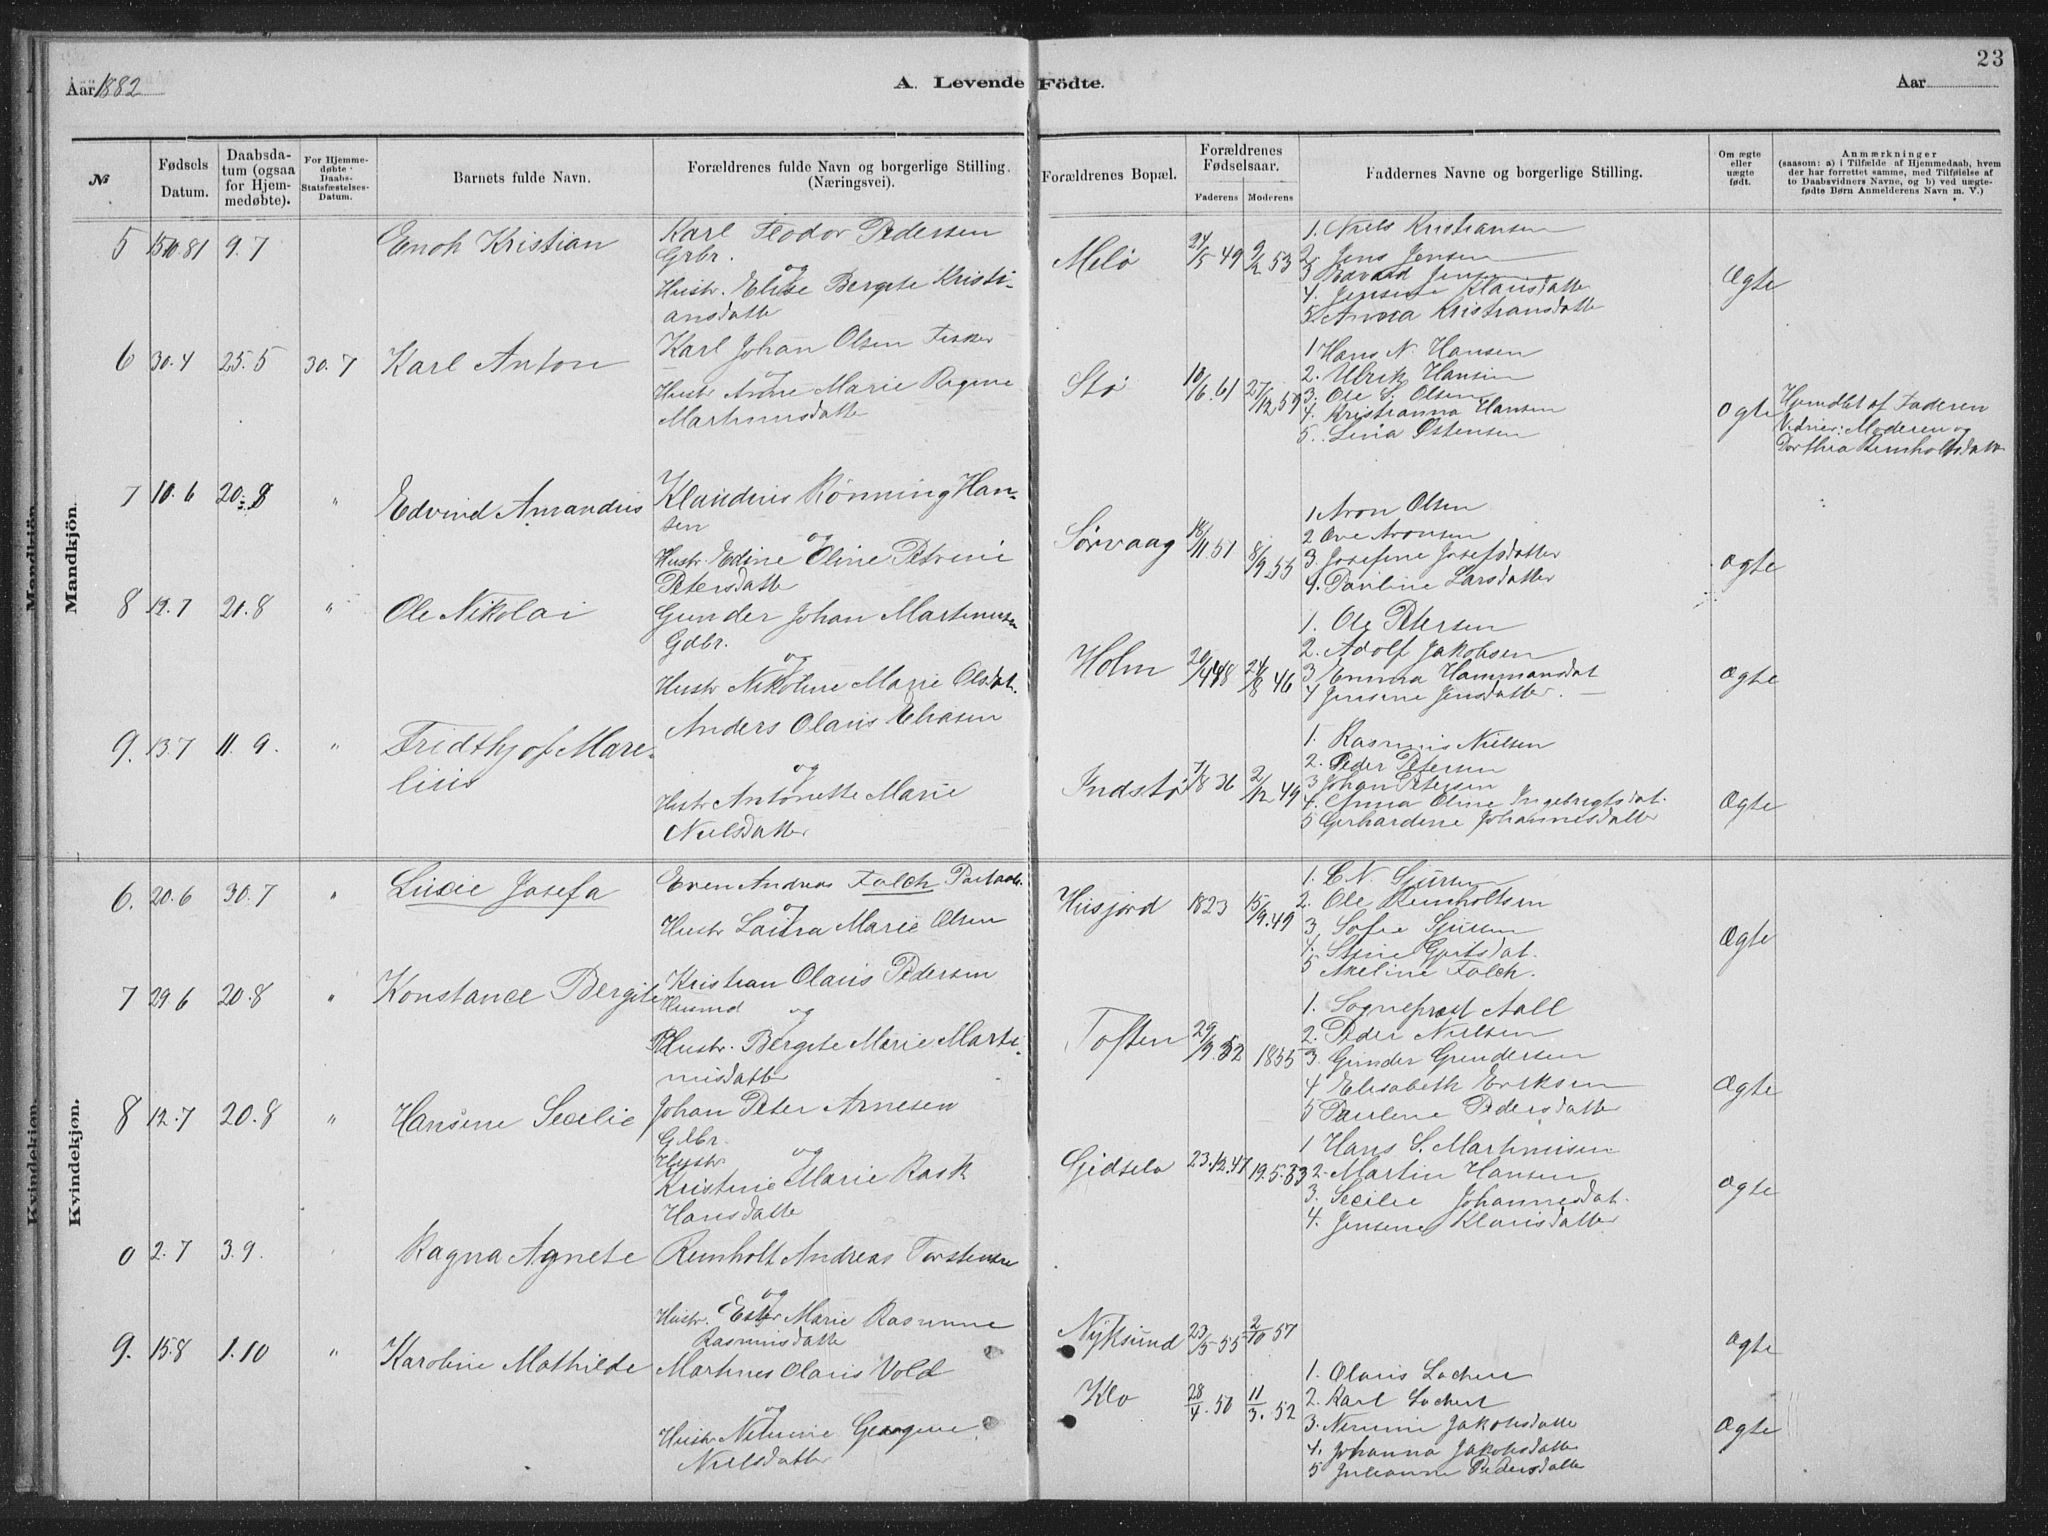 Aar 1882
A. Levende Födte.
Aar
23
№
Fødsels Datum.
Daabsdatum (ogsaa for Hjemmedøbte).
For Hjemmedøbte: Daabs-Statsfæstelses-Datum.
Barnets fulde Navn.
Forældrenes fulde Navn og borgerlige Stilling. (Næringsvei).
Forældrenes Bopæl.
Forældrenes Fødselsaar.
Faderens
Moderens
Faddernes Navne og borgerlige Stilling.
Om ægte eller uægte født.
Anmærkninger
(saasom: a) i Tilfælde af Hjemmedaab, hvem der har forrettet samme, med Tilføielse af to Daabsvidners Navne, og b) ved uægtefødte Børn Anmelderens Navn m. V.)
Mandkjön.
5 9.7 Enoh Kristian
Karl Teodor Pedersen
Grbr. og
Hustr. Elise Bergete Kristi-
ansdatte
Melö 24/5 49 9/2 53
1. Niels Kristiansen
2. Jens Jensen
3 Edvard Jensen
4. Jensine Klausdatte
5. Anna Kristiansdatte
Ægte
6 30.4 25.5 30.7 Karl Anton
Karl Johan Olsen Fisker
og
Hustr Anne Marie Regine
Martinusdatte
Stö 10/6.61 27/12 59
1 Hans N. Hansen
2. Ulrik Hansen
3. Ole S. Olsen
4. Kristianna Hansen
5. Lina Ostensen
Ægte
Hjemdbt af Faderen
Vidner: Moderen og
Dorthea Reinholtsdatte
7 10.6 20.8 " Edvind Amandus
Klaudius Rönning Han-
sen og
Hustr. Edine Oline Petrine
Petersdatte
Sørvaag 16/11 51 8/9.55
1 Aron Olsen
2 Ove Aronsen
3 Josefine Josefsdatter
4. Pauline Larsdatter
Ægte
8 12.7 20.8 " Ole Nikolai
Gunder Johan Martinusen
Gdbr.
og
Hustr Nikoline Marie Olsdat.
Holm 20/4 48 24/8 46
1. Ole Petersen
2. Adolf Jakobsen
3 Emma Hammansdat
4 Jensine Jensdatter.
Ægte
9. 13.7 11.9. " Fridthjof Mare-
lius
Anders Olaus Eliasen
og
Hustr Antonette Marie
Nielsdatter
Indstö 7/8 36 2/12 49
1. Rasmus Nielsen
2. Peder Petersen
3 Johan Petersen
4. Anna Oline Ingebrigtsdat.
5 Gerhardine Johannesdatter
Ægte
Kvindekjøn.
6. 20.6 30.7 " Lusie Josefa
Even Andreas Falch
og
Hustr Laura Marie Olsen
Husjord 1823 15/9.49
1. C. N. Sjursen
2. Ole Reinholtsen
3. Sofie Sjursen
4. Stine
5 Axeline Falch.
Ægte
7 29.6 20.8 " Konstance Bergite
Kristian Olaus Pedersen
Husmd og
Hustr. Bergete Marie Marti-
nusdatte
Toften 29/9.52 1855
1. Sogneprest Aall
2. Peder Nielsen
3. Gunder Gundersen
4 Elisabeth Eriksen
5 Pauline Pedersdatter
Ægte
8 12.7 20.8 " Hansine Secilie
Johan Peter Arnesen
Gdbr.
Hustr og
Kristine Marie Rask
Hansdatte
Gidselö 23.12.47 19.5.53
1 Hans S. Martinusen
2. Martin Hansen
3. Secilie Johannesdat.
4. Jensine Klausdatter
Ægte
0 2.7 3.9. Ragna Agnete
Reinholt Andreas Torstensen
og
Hustr. Ester Marie Rasmine
Rasmusdatte
Nyksund 23/5-55 2/10 57
Ægte
9. 15.8 1.10 " Karoline Mathilde
Martines Olaus Vold
og
Hustr Nelmine Georgine
Nielsdatter
Klo 28/4.50 11/3.52
1. Olaus Lockert
2. Karl Lockert
3. Jakobsdatte
4. Johanna Jakobsdatte
5 Julianne Pedersdatte
Ægte